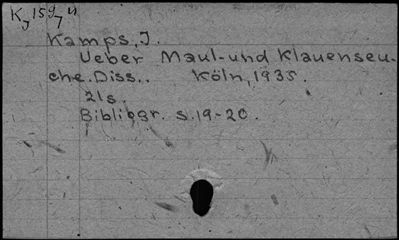 K7159/7 u
Kamps, J.
Ueber Maul- und Klauenseu-
che. Diss.. Köln, 1935.
21s.
Bibliogr. s. 19-20.